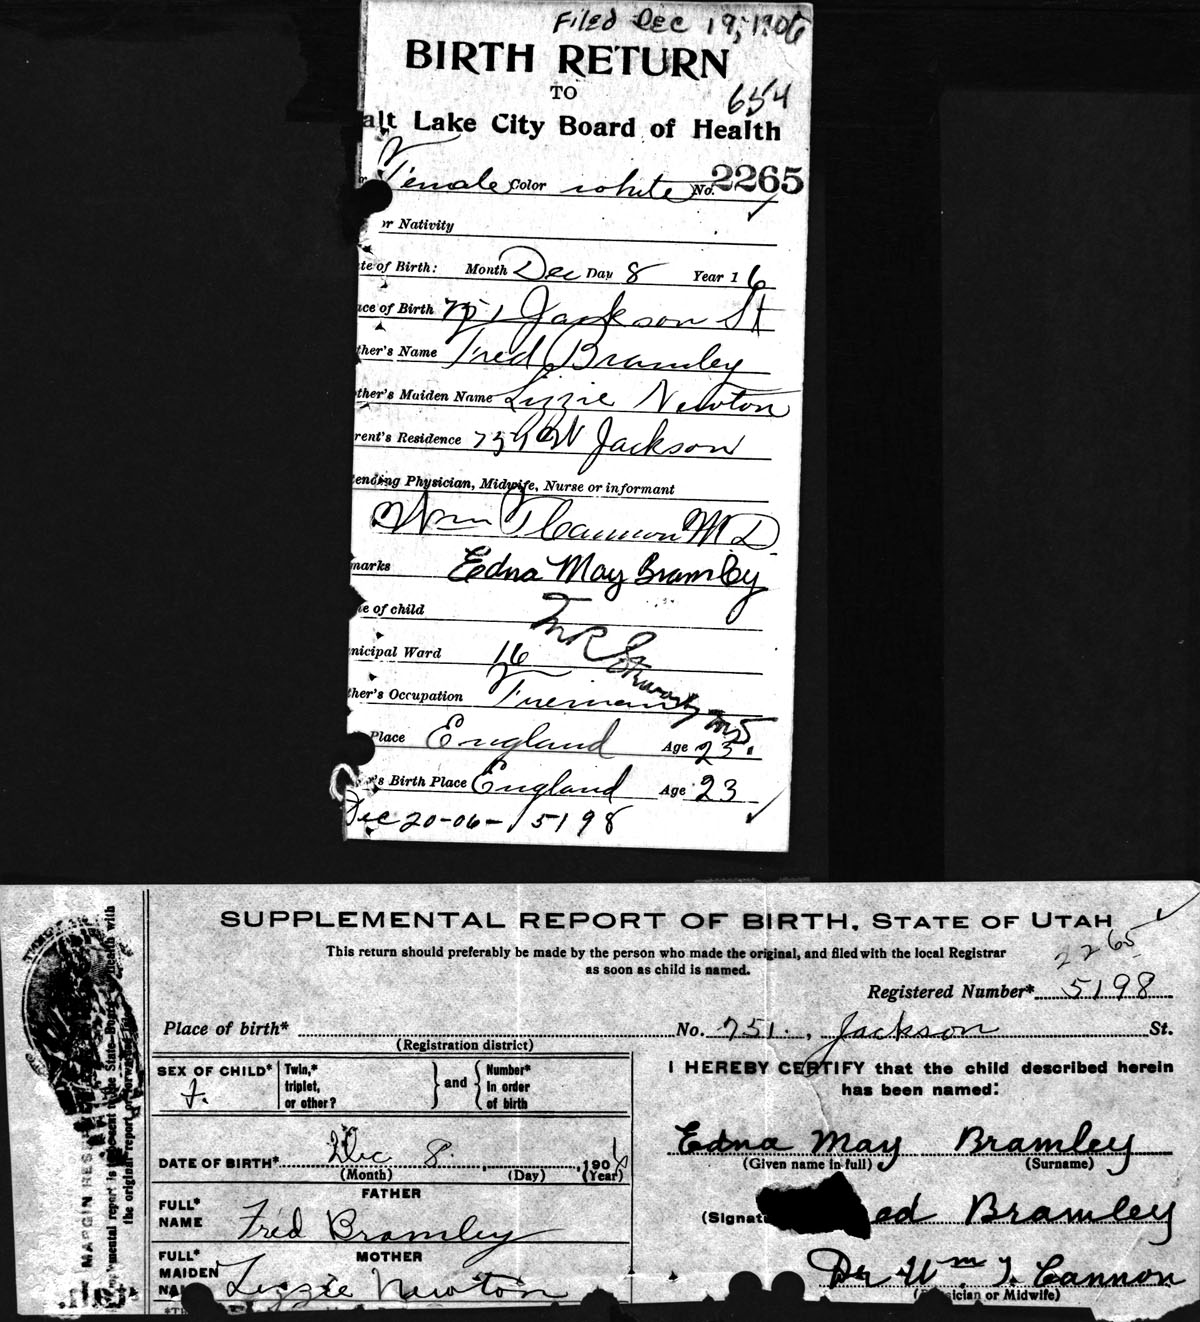 Filed Dec 19, 1906
BIRTH RETURN
TO
654
alt Lake City Board of Health
Female Color white No. 2265
r Nativity
te of Birth: Month Dec Day 8 Year 1 6
ce of Birth 751 Jackson St
ther's Name Fred Bramley
ther's Maiden Name Lizzie Newton
rent's Residence Jackson
tending Physician, Midwife, Nurse or informant
Wm T Cannon M D
marks Edna May Bramley
e of child
nicipal Ward 16
ther's Occupation
Place England Age 23
's Birth Place England Age 23
Dec 20-06- 5198
SUPPLEMENTAL REPORT OF BIRTH, STATE OF UTAH
This return should preferably be made by the person who made the original, and filed with the local Registrar
as soon as child is named.
2265
Registered Number* 5198
Place of birth* No. 751. , Jackson St.
(Registration district)
SEX OF CHILD* f. Twin,* triplet, or other? } and { Number* in order of birth
DATE OF BIRTH* Dec 8. , 1906
(Month) (Day) (Year)
FATHER
FULL* NAME Fred Bramley
MOTHER
FULL* MAIDEN NA Lizzie Newton
I HEREBY CERTIFY that the child described herein
has been named:
Edna May Bramley
(Given name in full) (Surname)
(Signat ed Bramley
Dr Wm T. Cannon
ician or Midwife)
MARGIN RES
the original report